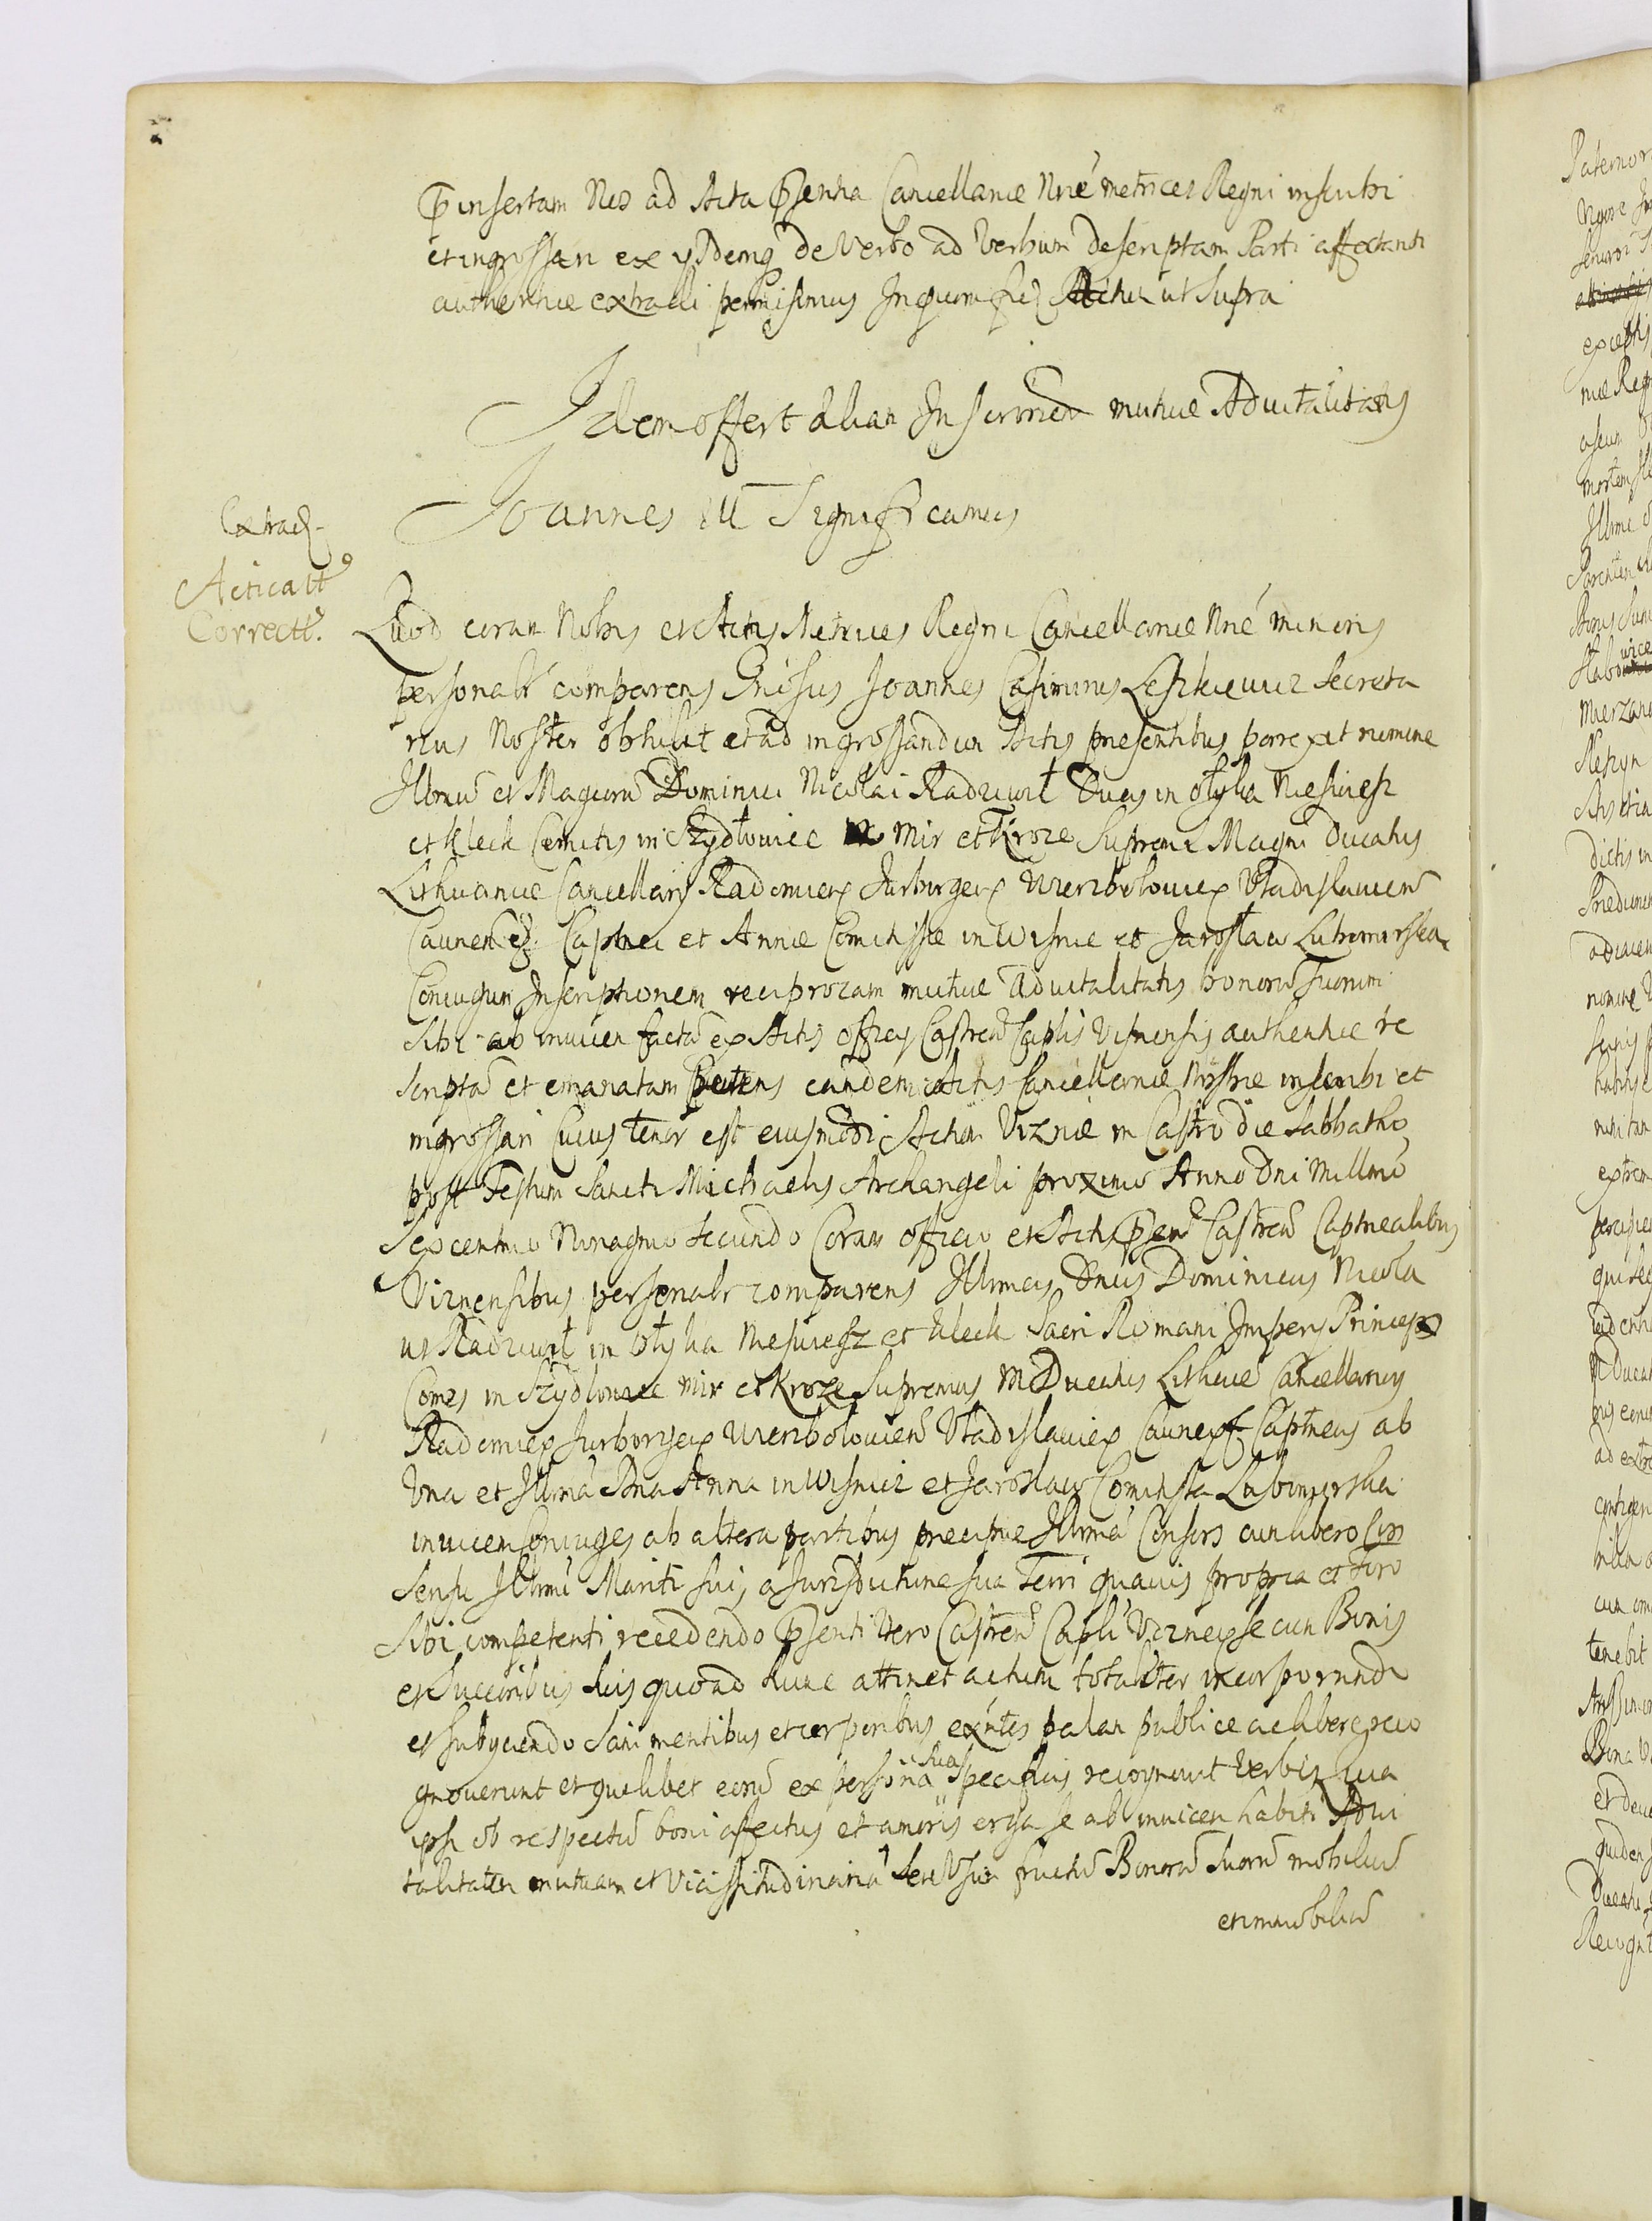 insertam Nos ad Acta Pse͞ntia Cancellariæ Nr͞æ metrices Regni inscribi
et ingrossari ex ijsdemq̨ de Verbo ad Verbum descriptam Parti affectanti
authentice extradi permisimus In quorum fid Actum ut supra
Idem offert aliam Inscri͞onem mutuæ Advitalitatis
Joannes III Significamus
Extrad
Acticatt
Correctt.
Quod coram Nobis et Actis Metrices Regni Cancellariæ Nr͞æ minoris
personalr comparens Gn͞osus Joannes Casimirus Leszkiewicz Secreta
rius Noster obtulit et ad ingrossandum Actis præsentibus porrexit nomine
Illmorũ et Magcorũ Dominici Nicolai Radziwił Ducis in Ołyka Nieswiesz
et Kleck Comitis in Szydłowiec Mir et Kroze Supremi Magni Ducatus
Lithuaniæ Cancellarij Radomien Jurborgen Wierzbołowien Vładislavien
Caunen Captnei et Annæ Comitissæ in Wisnic et Jarosław Lubomirska
Coniugum Inscriptionem reciprocam mutuæ Advitalitatis bonorũ suorum
Sibi ab invicem factã ex Actis Officij Castren Caplis Visnensis authentice re
scriptã et emanatam Petens eandem Actis Cancellariæ Nostræ inscribi et
ingrossari Cuius tenor est eiusmodi Actum Viznæ in Castro die Sabbatho
post Festum Sancti Michaelis Archangeli proximo Anno Dni Millmo
Sexcentmo Nonagmo secundo Coram officio et Actis Psen Castren Captnealibus
Viznensibus personalr comparens Illmus Dnus Dominicus Nicola
us Radziwił in Ołyka Nieswiesz et Kleck Sacri Romani Imperij Princeps
Comes in Szydłowiec Mir et Kroze Supremus M Ducatus Lithuæ Cancellarius
Radomien Jurborgen Wierzbołowien Vładislavien Caunen Captneus ab
Una et Illma Dna Anna in Wisnicz et Jarosław Comitissa Lubomirska
invicem Coniuges ab altera partibus præcipue Illma Consors cum libero Con
sensu Illmi Mariti sui, a Jurisdictione sua Terri quavis propria et foro
Sibi competenti recedendo Psenti Vero Castren Capli Viznen se cum Bonis
et Succoribus suis quoad hunc attinet actum totaliter incorporando
et subijciendo Sani mentibus et corporibus exn͞tes palam publice ac libere reco
gnoverunt et quilibet eorũ ex persona sua specificus recognovit Verbis quia
ipsi ob respectũ boni affectus et amoris erga se ab invicem habiti Advi
talitatem mutuam et Vicissitudinariã seu Usum fructũ Bonorũ Suorũ mobiliũ
et immobiliũ